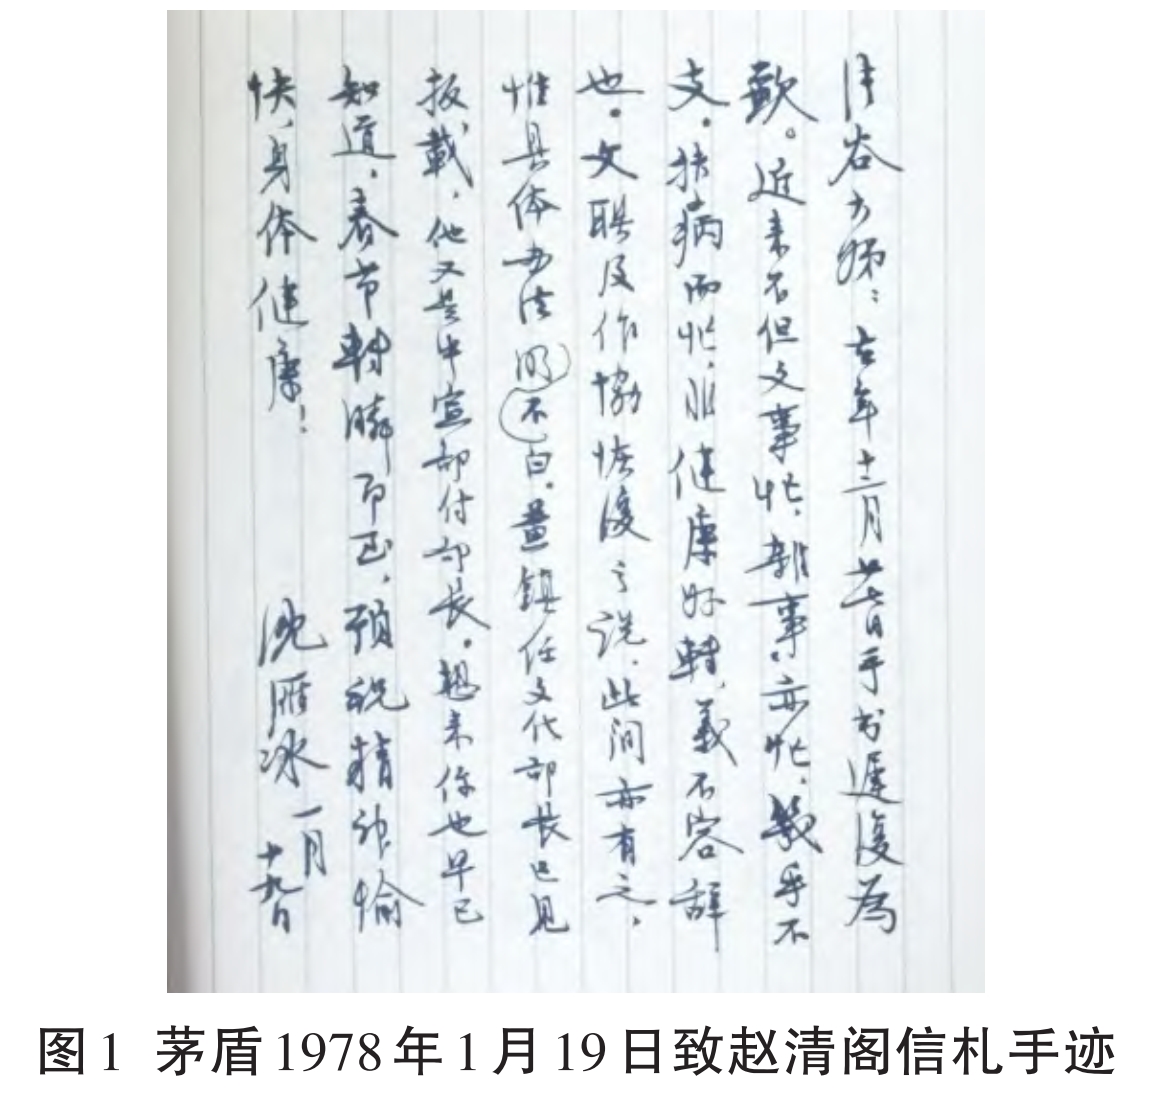 清谷大姊：去年十二月廿日手书遲復為
歉。近来不但文事忙，雜事亦忙，幾乎不
支。扶病而忙，非健康好転，義不容辞
也。文联及作协恢復之说，此间亦有之，
惟具体办法明不白。黄镇任文代部长已见
报載，他又是中宣部付部长。想来你也早已
知道。春节転瞬即至，預祝精神愉
快，身体健康！
沈雁冰 一月
十九日
图1 茅盾1978年1月19日致赵清阁信札手迹